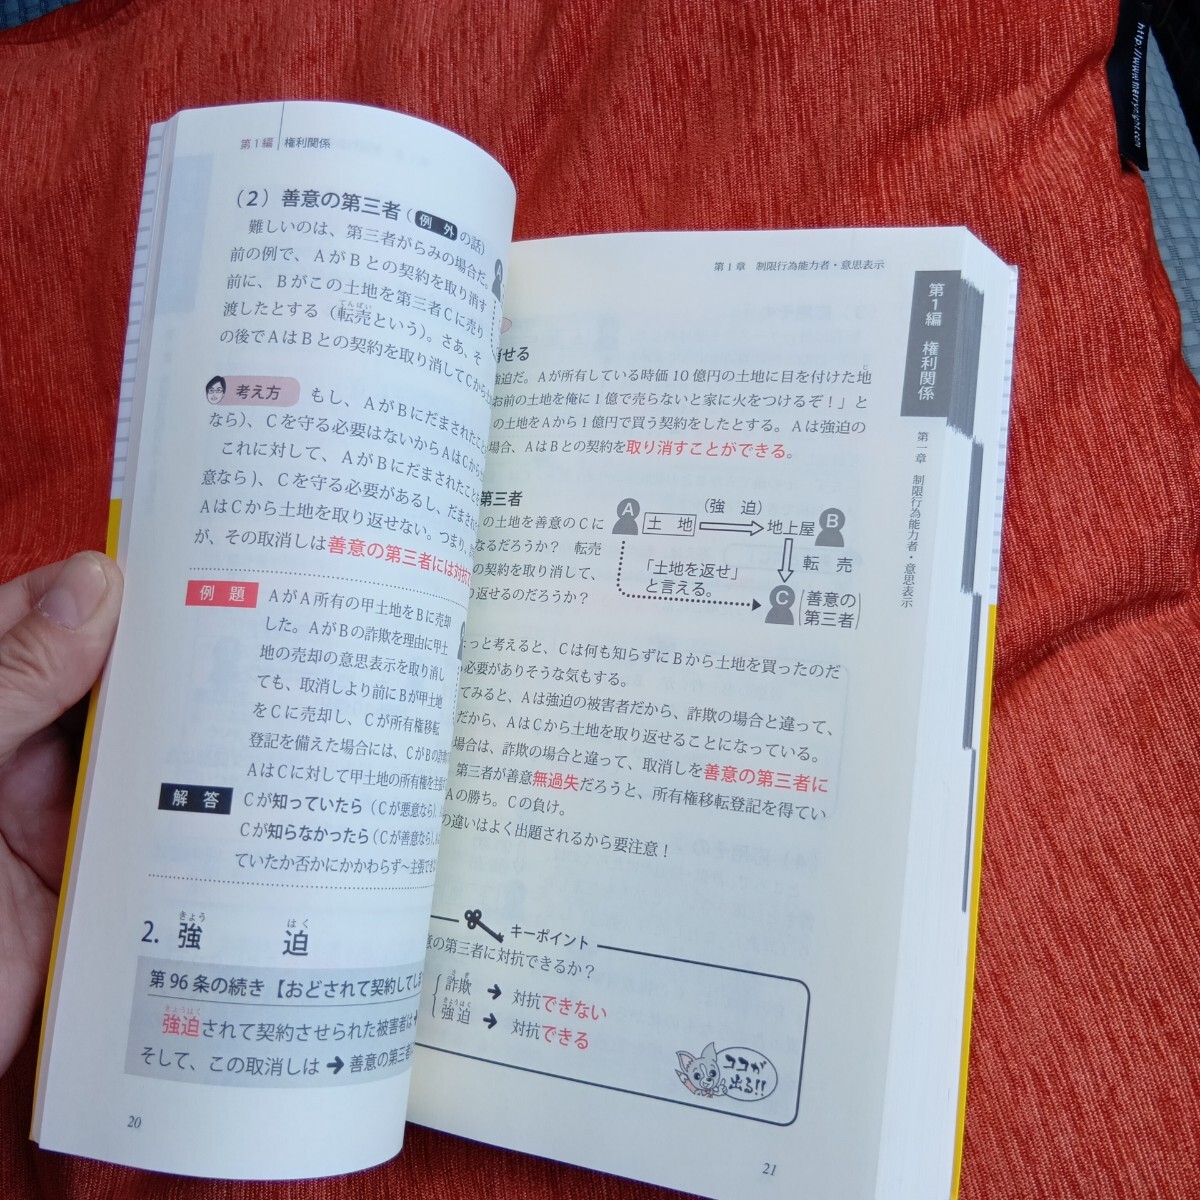 第1編 権利関係
(2) 善意の第三者（例外の話）
難しいのは、第三者がらみの場合だ。
前の例で、AがBとの契約を取り消す
前に、Bがこの土地を第三者Cに売り
渡したとする（転売という）。さあ、そ
てんばい
の後でAはBとの契約を取り消してCから
考え方 もし、AがBにだまされたこ
なら）、Cを守る必要はないからAはCから
これに対して、AがBにだまされたこと
意なら）、Cを守る必要があるし、だまされ
AはCから土地を取り返せない。つまり、
が、その取消しは善意の第三者には対抗
例題 AがA所有の甲土地をBに売却
した。AがBの詐欺を理由に甲土
地の売却の意思表示を取り消し
ても、取消しより前にBが甲土地
をCに売却し、Cが所有権移転
登記を備えた場合には、CがBの詐欺
AはCに対して甲土地の所有権を主張
解答 Cが知っていたら（Cが悪意なら）、
Cが知らなかったら（Cが善意なら）、
ていたか否かにかかわらず〜主張でき
2. 強迫
きょう はく
第96条の続き【おどされて契約してしま
強迫されて契約させられた被害者は➔
きょうはく
そして、この取消しは➔善意の第三者
20
第1章 制限行為能力者・意思表示
消せる
強迫だ。Aが所有している時価10億円の土地に目を付けた地
じ
お前の土地を俺に1億で売らないと家に火をつけるぞ！」と
の土地をAから1億円で買う契約をしたとする。Aは強迫の
場合、AはBとの契約を取り消すことができる。
第三者
の土地を善意のCに
なるだろうか？ 転売
の契約を取り消して、
り返せるのだろうか？
A
土地
（強迫）
地上屋
B
転売
「土地を返せ」
と言える。
C
（善意の
第三者）
っと考えると、Cは何も知らずにBから土地を買ったのだ
必要がありそうな気もする。
てみると、Aは強迫の被害者だから、詐欺の場合と違って、
だから、AはCから土地を取り返せることになっている。
場合は、詐欺の場合と違って、取消しを善意の第三者に
第三者が善意無過失だろうと、所有権移転登記を得てい
Aの勝ち。Cの負け。
の違いはよく出題されるから要注意！
キーポイント
意の第三者に対抗できるか？
さぎ
詐欺 ➔ 対抗できない
きょうはく
強迫 ➔ 対抗できる
ココが
出る!!
21
第1編 権利関係
第一章 制限行為能力者・意思表示
http://www.merrynight.com